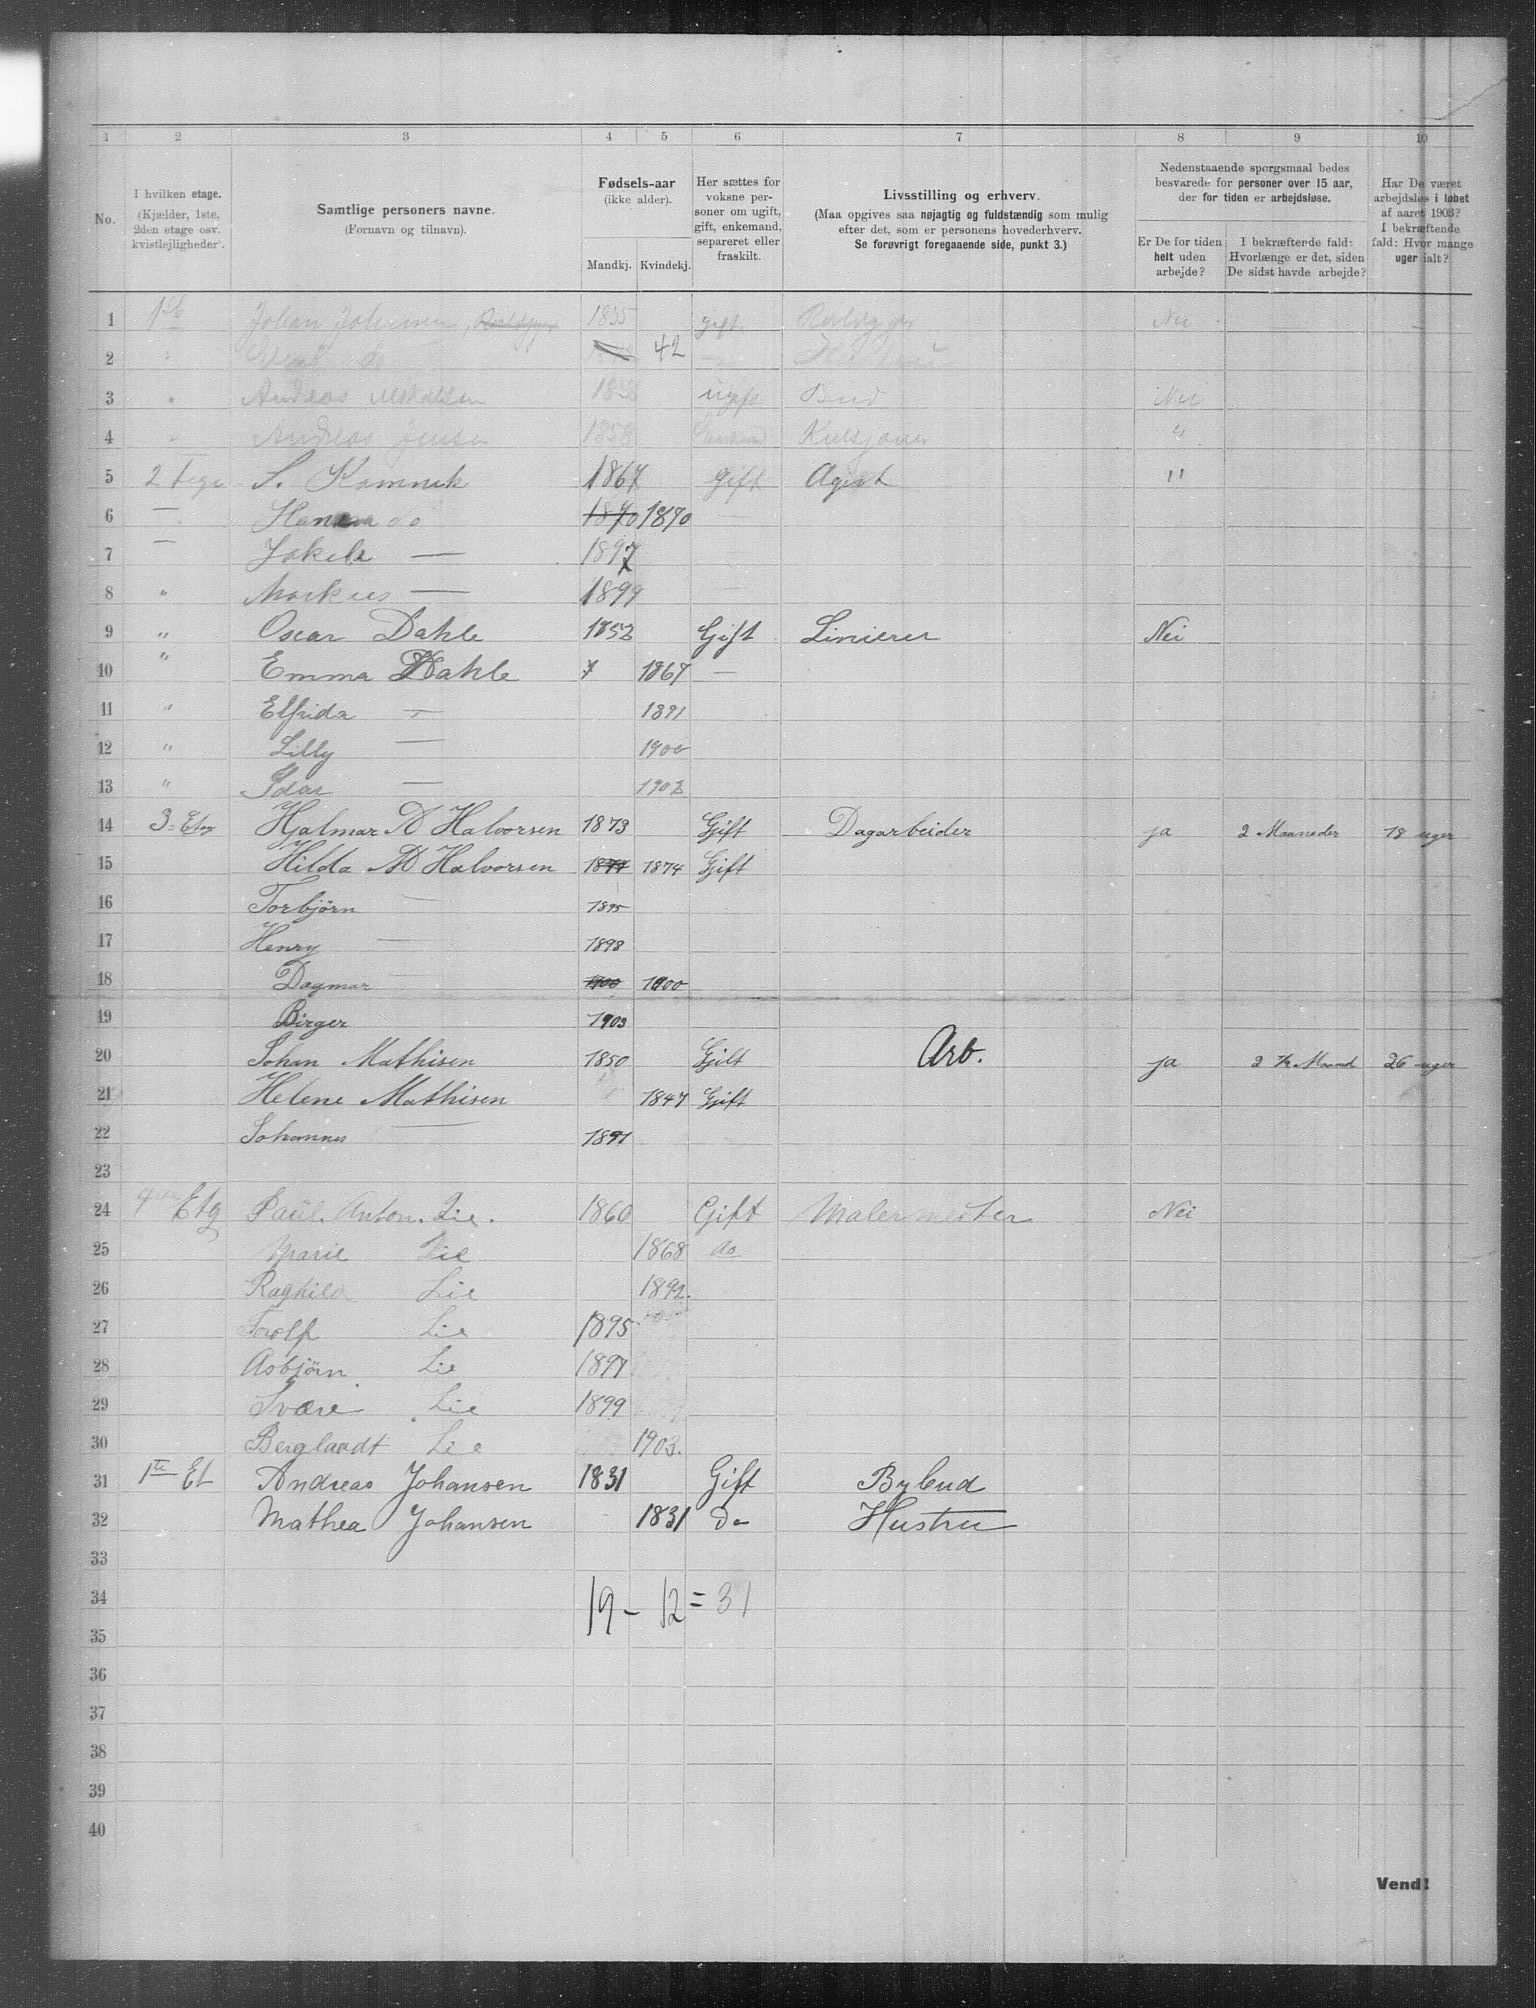 1 2 3 4 5 6 7 8 9 10
No.
I hvilken etage.
(Kjælder, 1ste,
2den etage osv.
kvistlejligheder).
Samtlige personers navne.
(Fornavn og tilnavn).
Fødsels-aar
(ikke alder).
Mandkj. Kvindekj.
Her sættes for
voksne per-
soner om ugift,
gift, enkemand,
separeret eller
fraskilt.
Livsstilling og erhverv.
(Maa opgives saa nøjagtig og fuldstændig som mulig
efter det, som er personens hovederhverv.
Se forøvrigt foregaaende side, punkt 3.)
Nedenstaaende spørgsmaal bedes
besvarede for personer over 15 aar,
der for tiden er arbejdsløse.
Er De for tiden
helt uden
arbejde?
I bekræftende fald:
Hvorlænge er det, siden
De sidst havde arbejde?
Har De været
arbejdsløs i løbet
af aaret 1903?
I bekræftende
fald: Hvor mange
uger ialt?
1 Johan 1835 gift Nei
2 " do 42
3 " Andreas 1838 ugift Bud Nei
4 " Andreas Jensen 1858 "
5 2 S. Komnik 1867 gift Agent "
6 — Hanna do 1870 1870
7 — Jakob — 1897
8 " Markus — 1899
9 " Oscar Dahle 1852 Gift Linierer Nei
10 " Emma Dahle 1867 —
11 " Elfrida — 1891
12 " Lilly — 1900
13 " Idar — 1902
14 3. Etag Hjalmar A Halvorsen 1873 Gift Dagarbeider ja 2 Maaneder 18 uger
15 Hilda M Halvorsen 1874 1874 Gift
16 Torbjörn — 1895
17 Henry — 1898
18 Dagmar — 1900 1900
19 Birger 1903
20 Johan Mathisen 1850 Gift Arb. ja 2 1/2 Maaned 26 uger
21 Helene Mathisen 1847 Gift
22 Johannes — 1891
23
24 4de Etg Paul. Anton. Lie. 1860 Gift Malermester Nei
25 Marie Lie 1868 do
26 Raghild Lie 1892.
27 Torolf Lie 1895
28 Asbjörn Lie 1897
29 Svære Lie 1899
30 Berglaudt Lie 1903.
31 1ste Et Andreas Johansen 1831 Gift Bybud
32 Mathea Johansen 1831 Do Hustru
33
34 19 – 12 = 31
35
36
37
38
39
40
Vend!